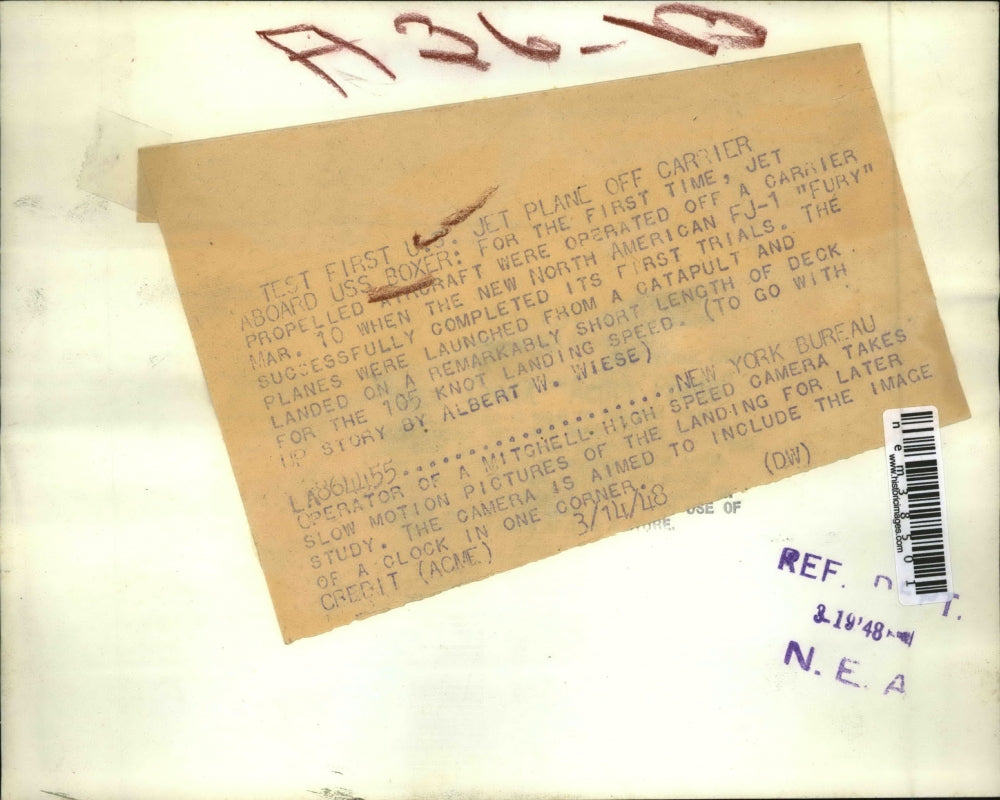 A36-B
TEST FIRST U.S. JET PLANE OFF CARRIER
ABOARD USS BOXER: FOR THE FIRST TIME, JET
PROPELLED AIRCRAFT WERE OPERATED OFF A CARRIER
MAR. 10 WHEN THE NEW NORTH AMERICAN FJ-1 "FURY"
SUCCESSFULLY COMPLETED ITS FIRST TRIALS. THE
PLANES WERE LAUNCHED FROM A CATAPULT AND
LANDED ON A REMARKABLY SHORT LENGTH OF DECK
FOR THE 105 KNOT LANDING SPEED. (TO GO WITH
UP STORY BY ALBERT W. WIESE)
LA864455........................NEW YORK BUREAU
OPERATOR OF A MITCHELL HIGH SPEED CAMERA TAKES
SLOW MOTION PICTURES OF THE LANDING FOR LATER
STUDY. THE CAMERA IS AIMED TO INCLUDE THE IMAGE
OF A CLOCK IN ONE CORNER.
CREDIT (ACME) 3/14/48 (DW)
USE OF
nem38501
www.historicimages.com
REF. D T.
3-19'48
N.E.A